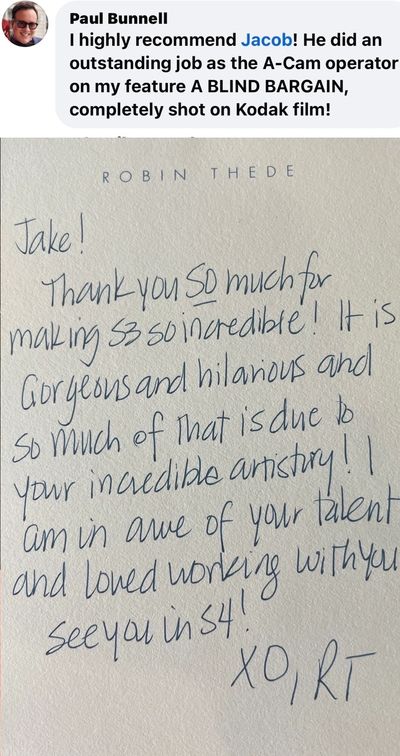 Paul Bunnell
I highly recommend Jacob! He did an
outstanding job as the A-Cam operator
on my feature A BLIND BARGAIN,
completely shot on Kodak film!
ROBIN THEDE
Jake!
Thank you SO much for
making S3 so incredible! It is
Gorgeous and hilarious and
so much of that is due to
your incredible artistry! I
am in awe of your talent
and loved working with you
See you in S4!
XO, RT